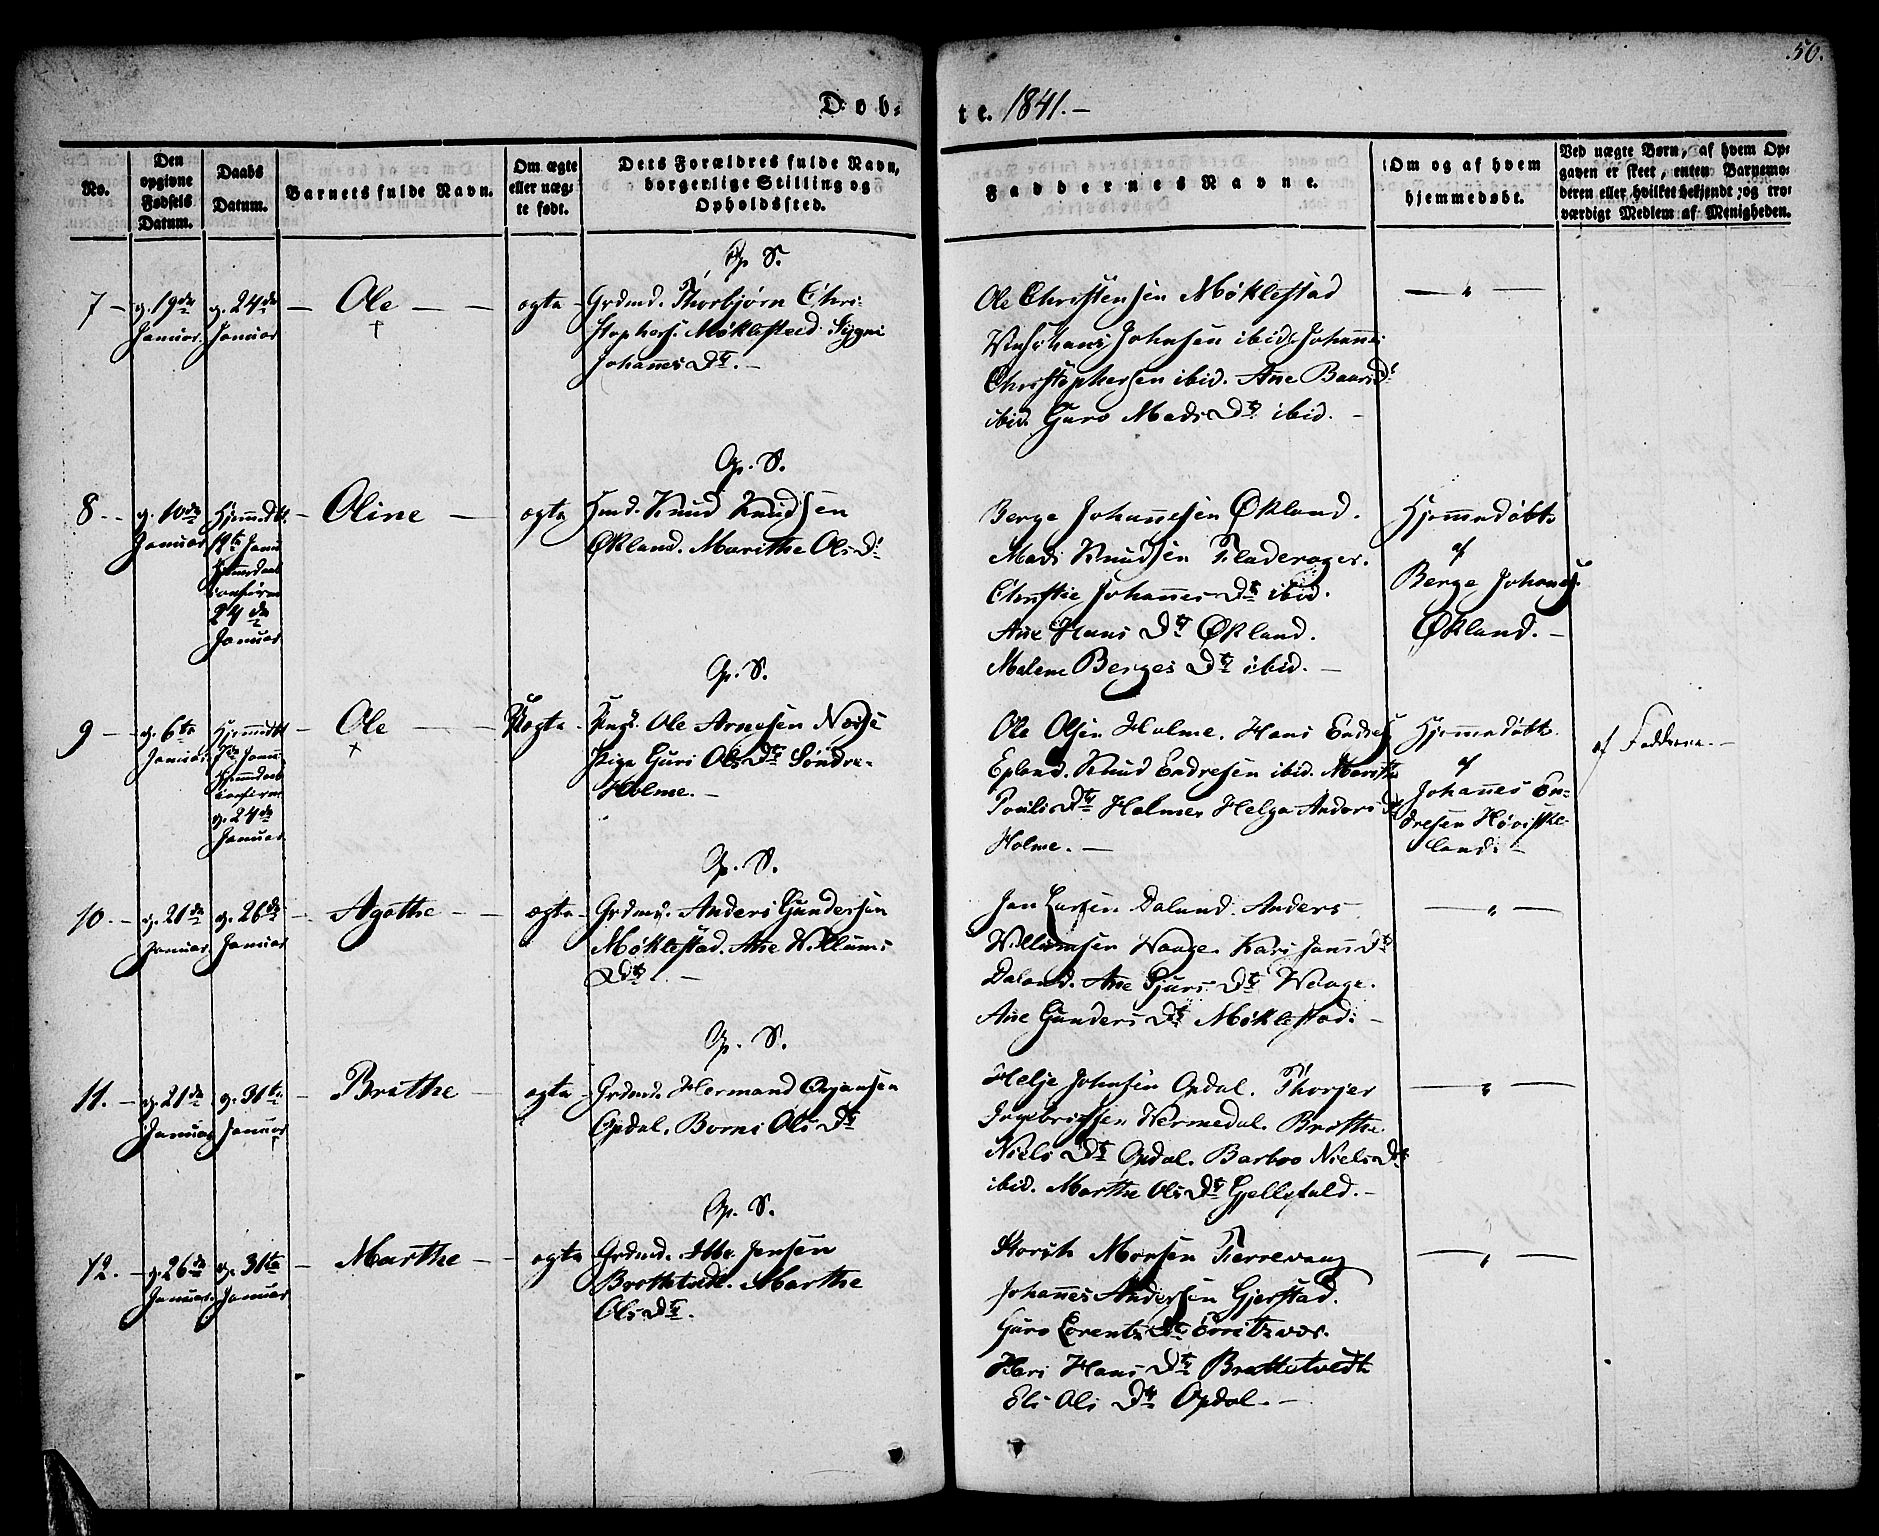 50.
Døb-
te. 1841.-
No.
Den opgivne Fødsels Datum.
Daabs Datum.
Barnets fulde Navn.
Om ægte eller uægte født.
Dets Forældres fulde Navn, borgerlige Stilling og Opholdssted.
Faddernes Navne.
Om og af hvem hjemmedøbt.
Ved uægte Børn, af hvem Opgaven er skeet, enten Barnemoderen eller hvilket bekjendt, og troværdigt Medlem af Menigheden.
G. S.
7 - g. 19de Januar.
g. 24de Januar
Ole
+
ægte
Grdmd. Thorbjørn Chri-
stophers. Møklestad. Sygni
Johannes Dtr.
Ole Christensen Møklestad
Johnsen ibid. Johannes
Christophersen ibid. Ane
ibid. Guro Mads Dtr ibid.
G. S.
8 - g. 10de Januar
24de
Januar
Oline
ægte
Hmd. Knud Knudsen
Økland. Marithe Ols D.
Berge Johannesen Økland.
Mads Knudsen Fladerager.
Christie Johannes Dtr ibid.
Ane Hans Dtr Økland.
Malene Berges Dtr ibid.
Hjemmedøbt
af
Berge Johannes.
Økland.
G. S.
9 - g. 6te Januar
g. 24de
Januar.
Ole
+
Uægte
Ungk. Ole Arnesen
Pige Guri Ols Dtr Søndre-
Holme.
Ole Olsen Holme. Hans Endres
Epland. Knud Endresen ibid.
Pouls Dtr Holme. Helga Anders D
Holme.
Hjemmedøbt
af
Johannes En-
dresen
land.
af Fadderne.
G. S.
10. - g. 21de Januar.
g. 26de Januar
Agathe
ægte
Grdmd. Anders Gundersen
Møklestad. Ane Willums
Dtr.
Jan Larsen Daland. Anders
Willumsen Waage. Kari Jans D
Daland. Ane Gjurs Dtr Waage.
Ane Gunders Dtr Møklestad.
G. S.
11. - g. 21de Januar
g. 31te Januar
Brithe
ægte
Grdmd. Hermand Ørjansen
Opdal. Borni Ols Dtr
Helje Johnsen Opdal. Thorjer
Ingebrigtsen Hermedal. Brithe
Niels Dtr Opdal. Barbro Niels Dtr
ibid. Marthe Ols Dtr
G. S.
12. - g. 26de Januar.
g. 31te Januar
Marthe
ægte
Grdmd. Jensen
Brattetvedt. Marthe
Ols Dtr.
Storik Monsen Fierrevaag
Johannes Andersen Gjerstad.
Guro Lorentz Dtr
Kari Hans Dtr Brattetvedt
Eli Ols Dtr Opdal.